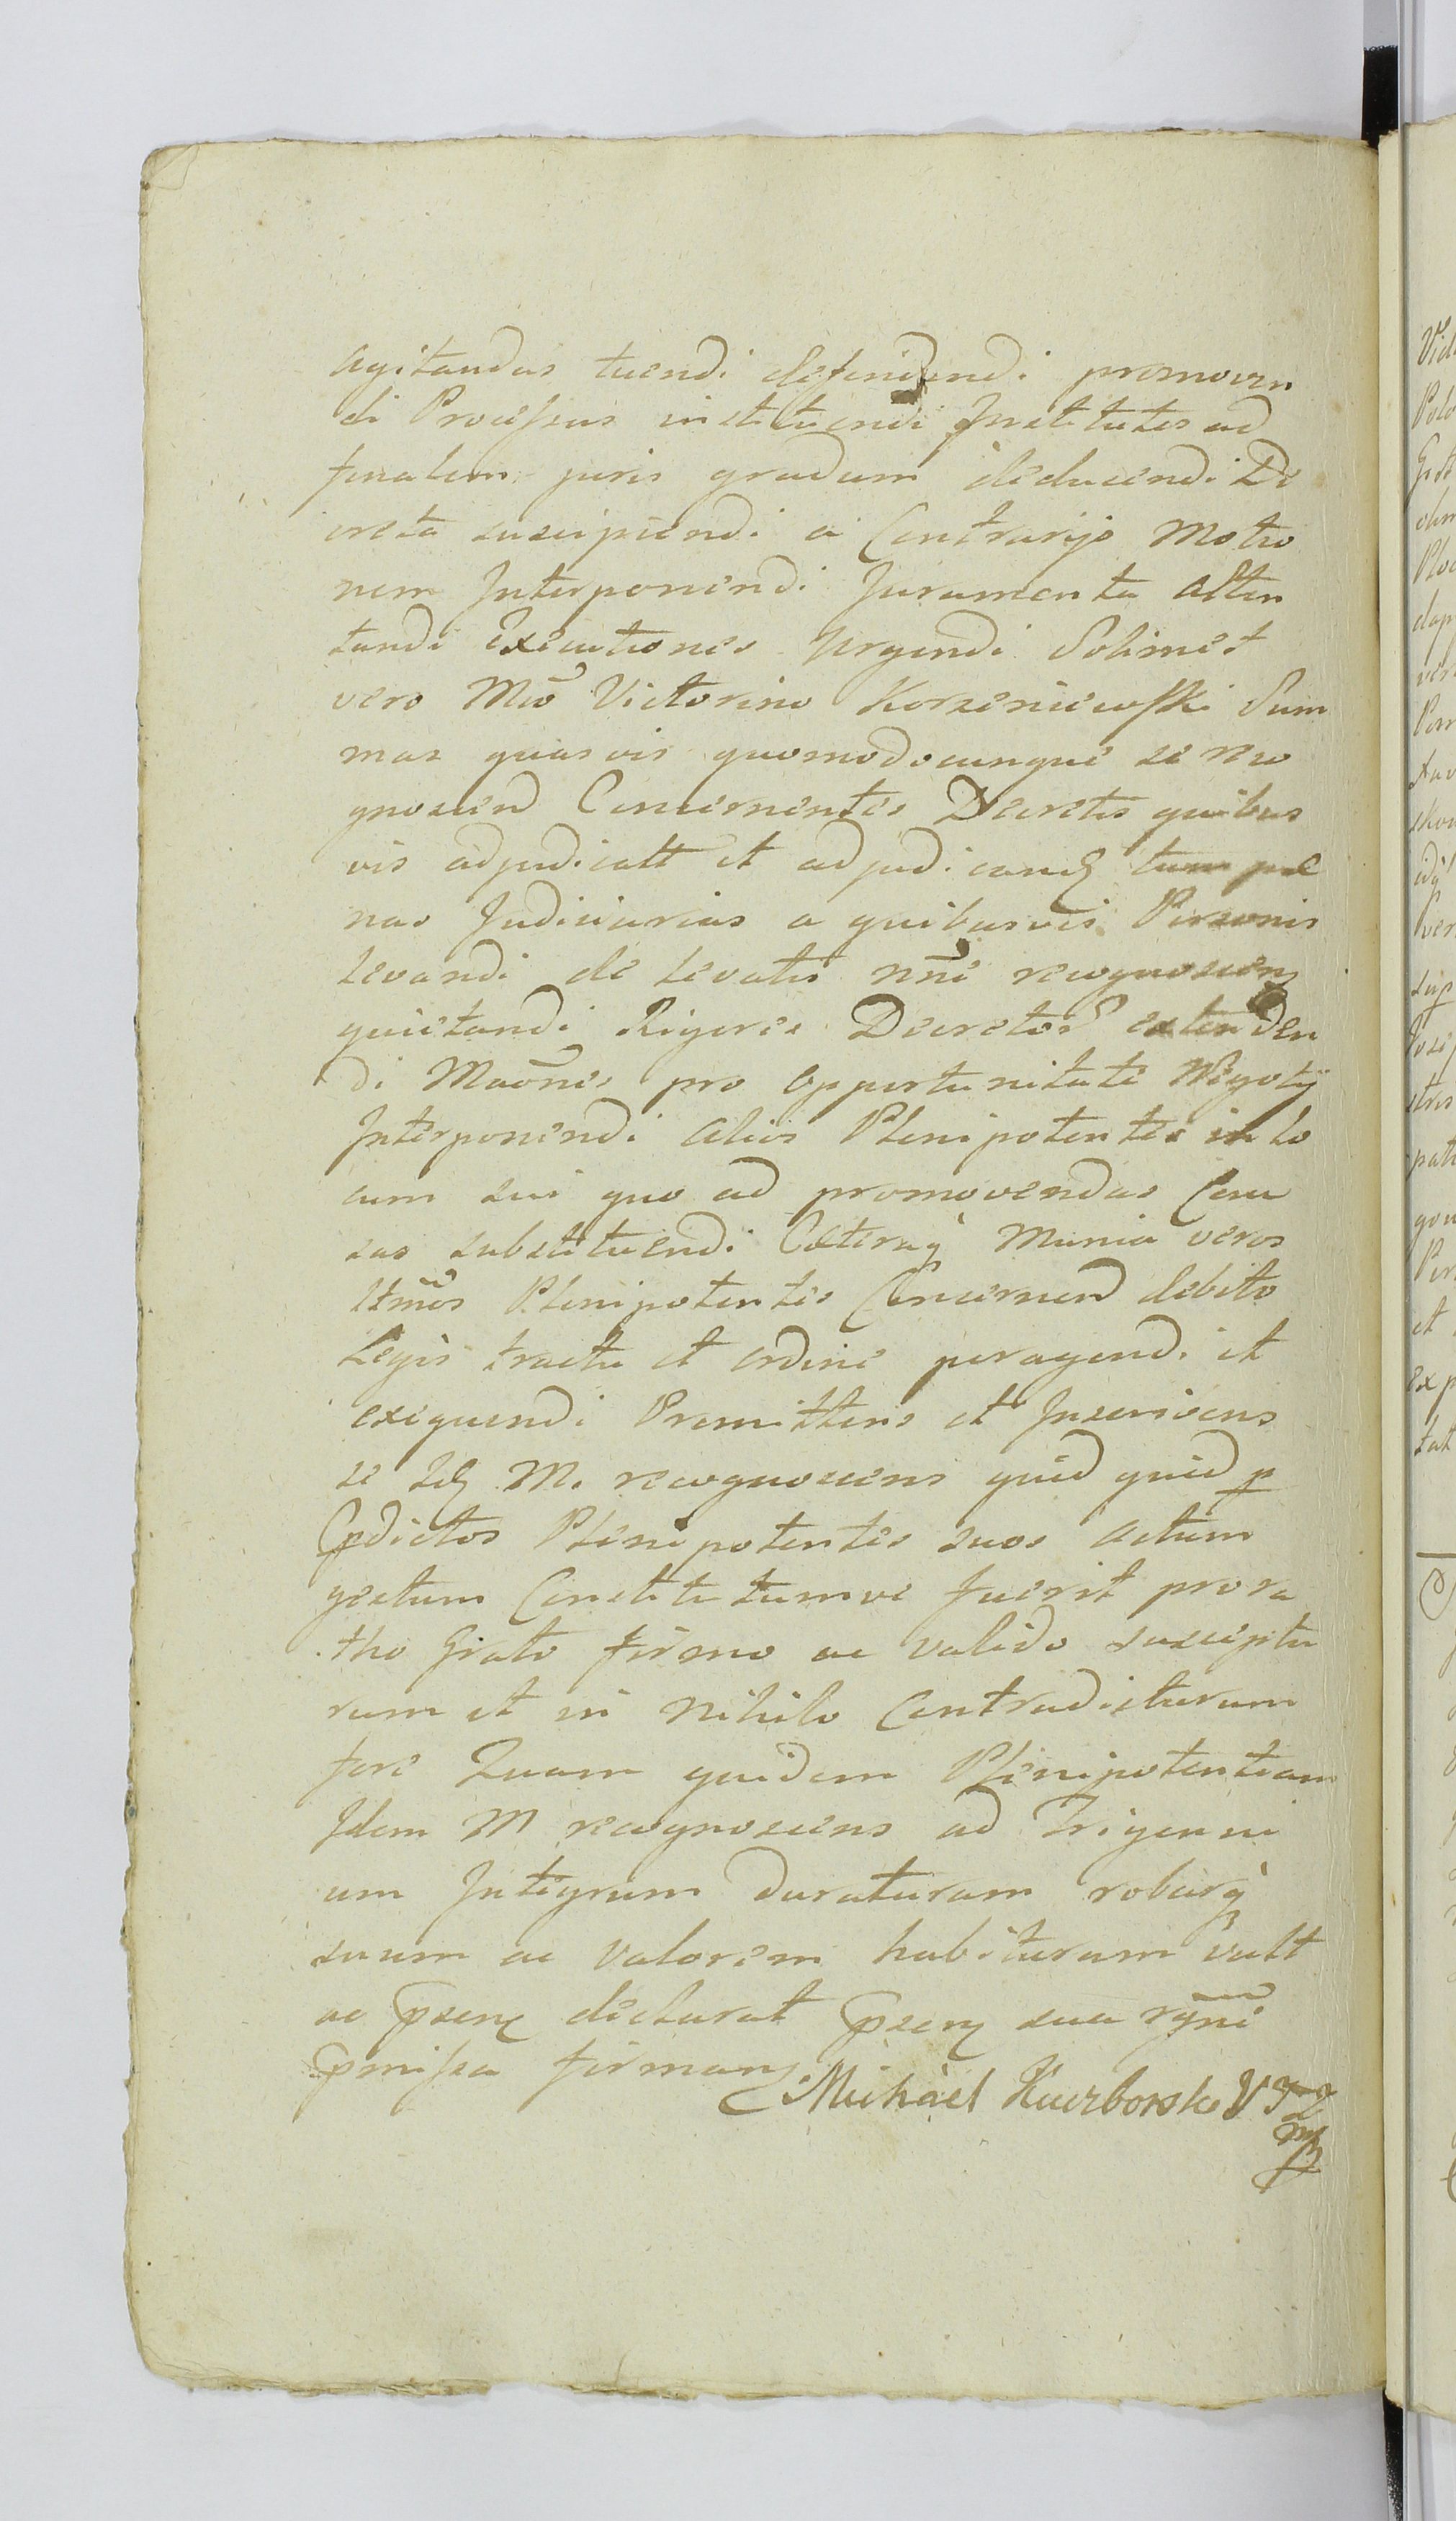 agitandas tuendi defendendi promoven
di Processus instituendi Institutos ad
finalem juris gradum deducendi De
creta suscipiendi a Contrarijs Motio
nem Interponendi Juramenta Atten
tandi Executiones Urgendi Solimet
vero Mco Victorino Korzeniewski Sum
mas quasvis quomodocunque se reco
gnoscen Concernentes Decretis quibus
vis adjudicatt et adjudicand tum pae
nas Judiciarias a quibusvis Personis
levandi de levatis nne recognoscen
quietandi Rigores Decretor extenden
di Maones pro opportunitate Negotij
Interponendi alios Plenipotentes in lo
cum sui quo ad promovendas Cau
sas substituendi Caeteraq Munia veros
Ltmos Plenipotentes Concernen debito
Legis tractu et ordine peragendi et
exequendi Promittens et Inscribens
se Id M. recognoscens quid quid p
pdictos Plenipotentes suos actum
gestum Constitutumve fuerit pro ra
tho Grato firmo ac valido susceptu
rum et in Nihilo Contradicturum
fore Quam quidem Plenipotentiam
Idem M recognoscens ad Trigenni
um Integrum duraturam roburq
suum ac valorem habituram vult
ac psen declarat psen sua rgne
pmissa firman
Michael Kuczborski VTZ
mp